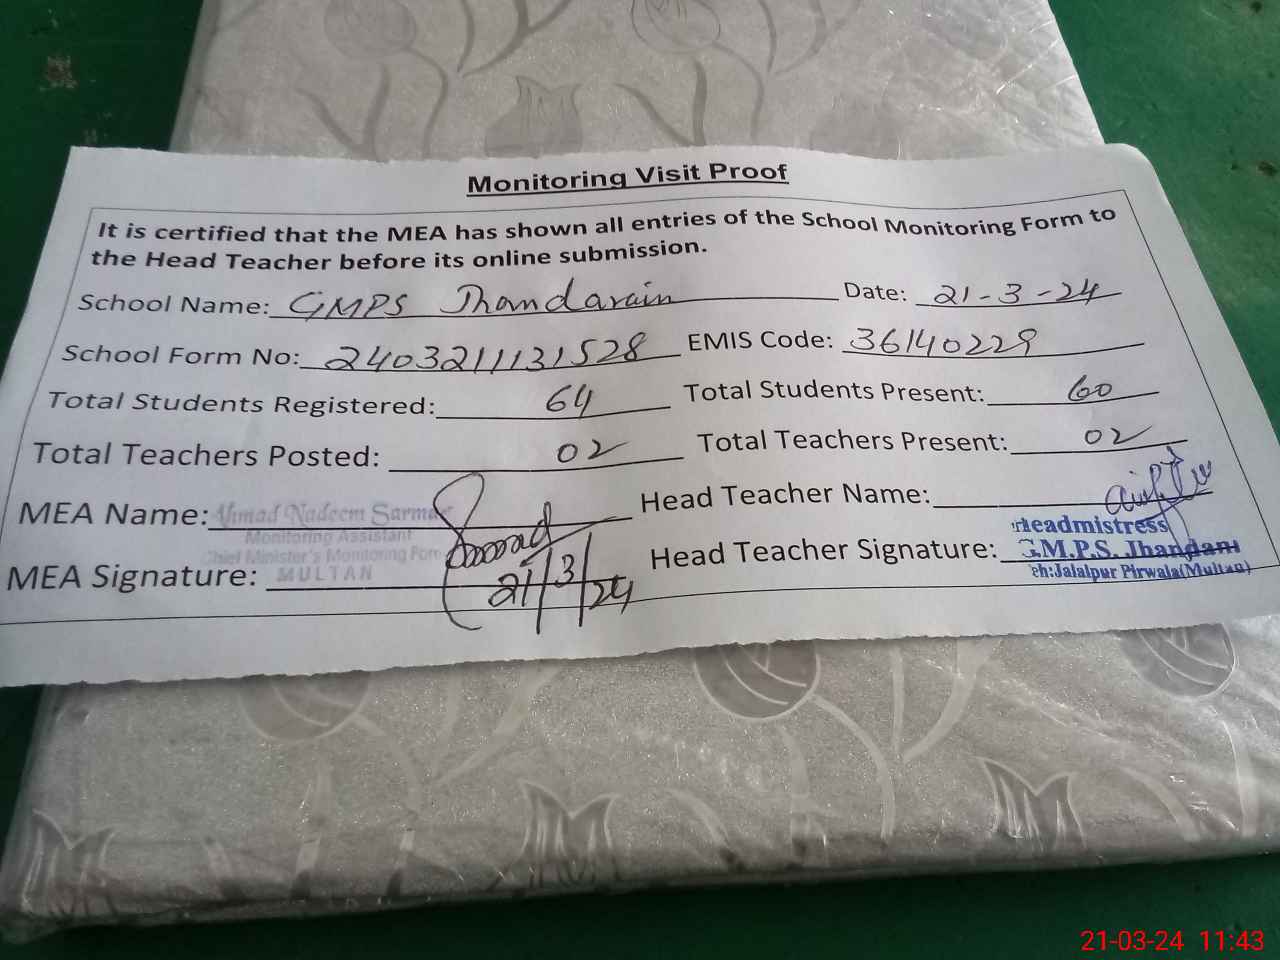 Monitoring Visit Proof
It is certified that the MEA has shown all entries of the School Monitoring Form to
the Head Teacher before its online submission.
School Name: GMPS Jhandarain Date: 21-3-24
School Form No: 2403211131528 EMIS Code: 36140229
Total Students Registered: 64 Total Students Present: 60
Total Teachers Posted: 02 Total Teachers Present: 02
MEA Name: Ahmad Nadeem Sarmad Head Teacher Name:
Monitoring Assistant
Chief Minister's Monitoring Force
MULTAN
MEA Signature: 21/3/24 Head Teacher Signature:
Headmistress
G.M.P.S. Jhandani
eh:Jalalpur Pirwala(Multan)
21-03-24 11:43